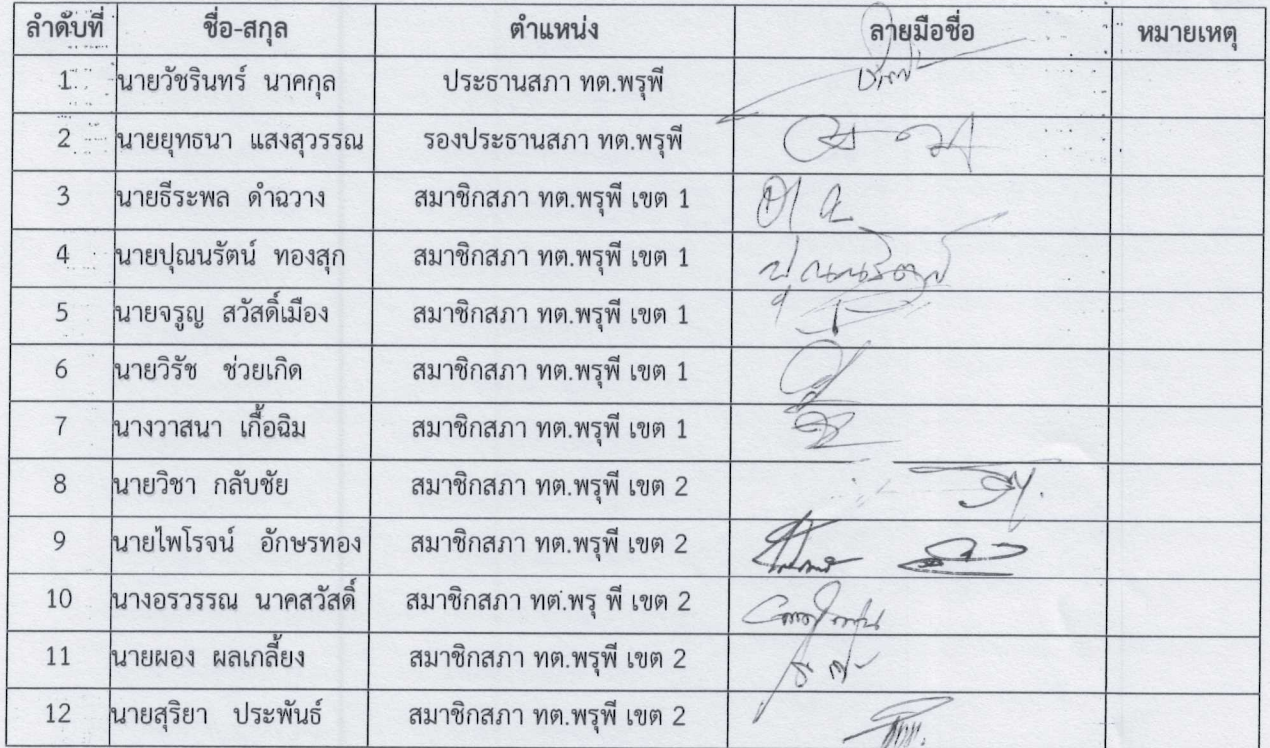 ลำดับที่ ชื่อ-สกุล ตำแหน่ง ลายมือชื่อ หมายเหตุ
1 นายวัชรินทร์ นาคกุล ประธานสภา ทต.พรุพี
2 นายยุทธนา แสงสุวรรณ รองประธานสภา ทต.พรุพี
3 นายธีระพล ดำฉวาง สมาชิกสภา ทต.พรุพี เขต 1
4 นายปุณนรัตน์ ทองสุก สมาชิกสภา ทต.พรุพี เขต 1 ปุณนรัตน์
5 นายจรูญ สวัสดิ์เมือง สมาชิกสภา ทต.พรุพี เขต 1
6 นายวิรัช ช่วยเกิด สมาชิกสภา ทต.พรุพี เขต 1
7 นางวาสนา เกื้อฉิม สมาชิกสภา ทต.พรุพี เขต 1
8 นายวิชา กลับชัย สมาชิกสภา ทต.พรุพี เขต 2
9 นายไพโรจน์ อักษรทอง สมาชิกสภา ทต.พรุพี เขต 2
10 นางอรวรรณ นาคสวัสดิ์ สมาชิกสภา ทต.พรุ พี เขต 2
11 นายผอง ผลเกลี้ยง สมาชิกสภา ทต.พรุพี เขต 2
12 นายสุริยา ประพันธ์ สมาชิกสภา ทต.พรุพี เขต 2